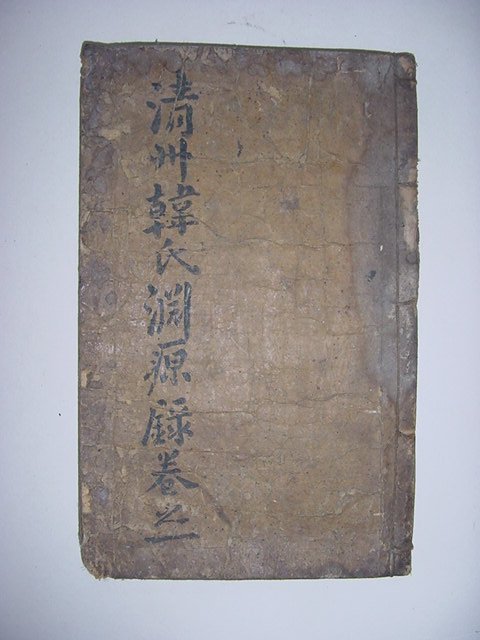 淸州韓氏淵源錄卷之一